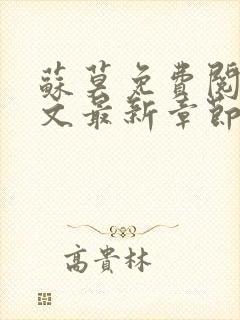 蘇莫免費閱
文最新章節
高貴林